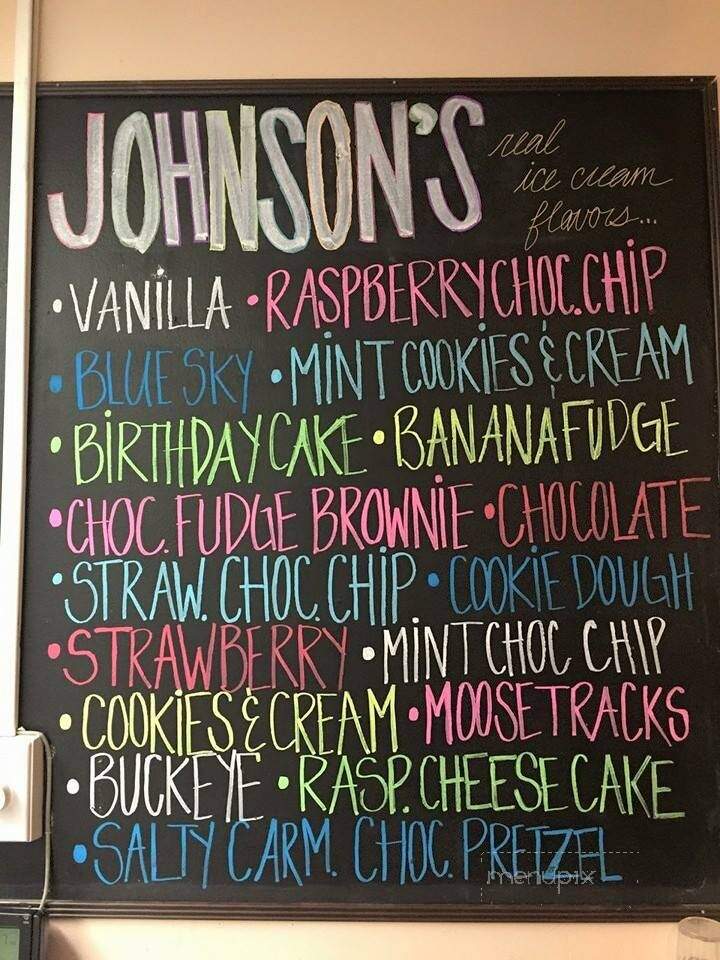 JOHNSON'S real
ice cream
flavors...
•VANILLA •RASPBERRY CHOC. CHIP
•BLUE SKY •MINT COOKIES & CREAM
•BIRTHDAY CAKE •BANANA FUDGE
•CHOC. FUDGE BROWNIE •CHOCOLATE
•STRAW. CHOC. CHIP •COOKIE DOUGH
•STRAWBERRY •MINT CHOC CHIP
•COOKIES & CREAM •MOOSETRACKS
•BUCKEYE •RASP. CHEESE CAKE
•SALTY CARM. CHOC. PRETZEL
menupix